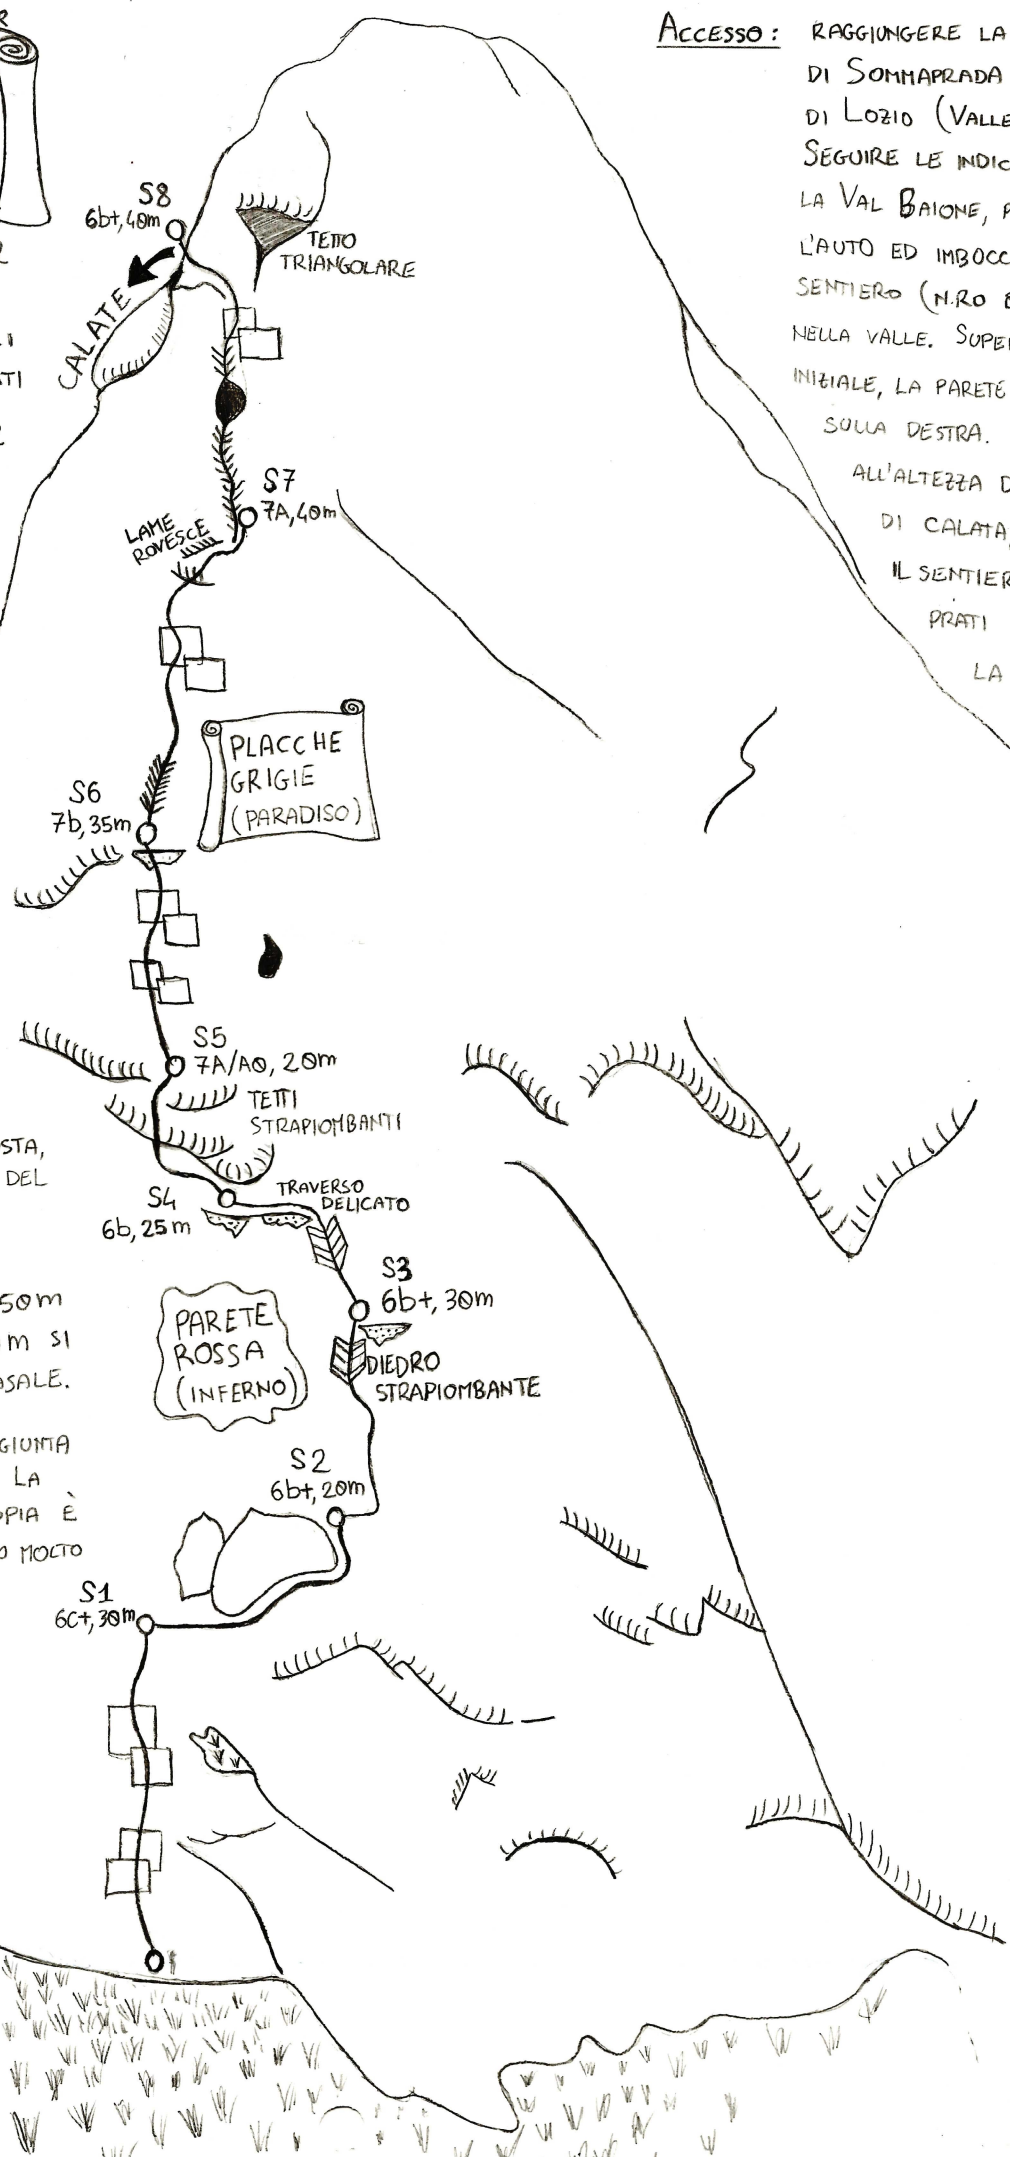 ACCESSO: RAGGIUNGERE LA
DI SOMMAPRADA
DI LOZIO (VALLE
SEGUIRE LE INDIC
LA VAL BAIONE, P
L'AUTO ED IMBOCC
SENTIERO (N.RO
NELLA VALLE. SUPE
INIZIALE, LA PARETE
SULLA DESTRA.
ALL'ALTEZZA D
DI CALATA,
IL SENTIER
PRATI
LA
S8
6b+, 40m
CALATE
TETTO
TRIANGOLARE
TI
S7
7A, 40m
LAME
ROVESCE
PLACCHE
GRIGIE
(PARADISO)
S6
7b, 35m
S5
7A/A0, 20m
TETTI
STRAPIOMBANTI
STA,
DEL
TRAVERSO
DELICATO
S4
6b, 25m
S3
6b+, 30m
PARETE
ROSSA
(INFERNO)
DIEDRO
STRAPIOMBANTE
50m
m SI
ASALE.
GIUNTA
LA
OPIA È
O MOLTO
S2
6b+, 20m
S1
6c+, 30m